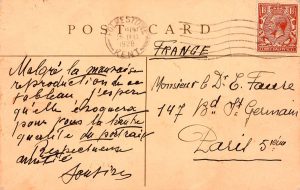 POST CARD
FOLKESTONE
1928
KENT
FRANCE
Malgré la mauvaise
reproduction de ce
tableau j'espère
qu'elle évoquera
pour vous la haute
qualité du portrait
respectueuse
amitié
Monsieur le Dr E. Faure
147 Bd St Germain
Paris 5